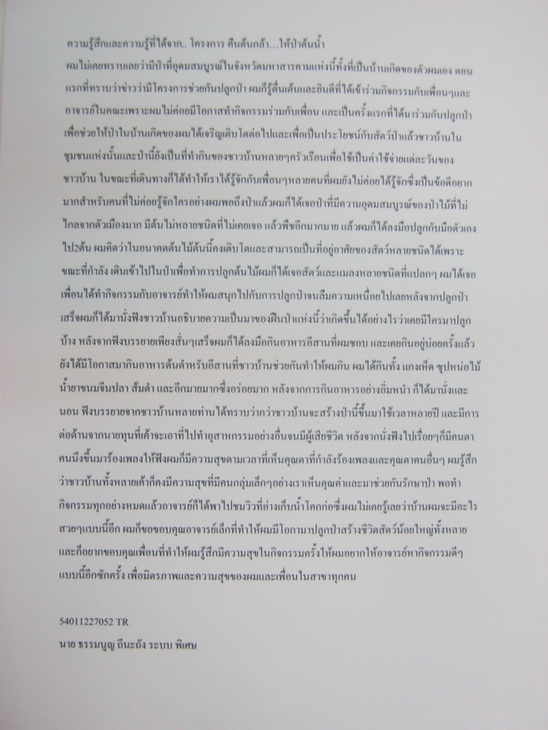 ความรู้สึกและความรู้ที่ได้จาก.. โครงการ คืนต้นกล้า…ให้ป่าต้นน้ำ
ผมไม่เคยทราบเลยว่ามีป่าที่อุดมสมบูรณ์ในจังหวัดมหาสารคามแห่งนี้ทั้งที่เป็นบ้านเกิดของตัวผมเอง ตอน
แรกที่ทราบว่าข่าวว่ามีโครงการช่วยกันปลูกป่า ผมก็รู้ตื่นเต้นและยินดีที่ได้เข้าร่วมกิจกรรมกับเพื่อนๆและ
อาจารย์ในคณะเพราะผมไม่ค่อยมีโอกาสทำกิจกรรมร่วมกับเพื่อน และเป็นครั้งแรกที่ได้มาร่วมกันปลูกป่า
เพื่อช่วยให้ป่าในบ้านเกิดของผมได้เจริญเติบโตต่อไปและเพื่อเป็นประโยชน์กับสัตว์ป่าแล้วชาวบ้านใน
ชุมชนแห่งนั้นและป่านี้ยังเป็นที่ทำกินของชาวบ้านหลายๆครัวเรือนเพื่อใช้เป็นค่าใช้จ่ายแต่ละวันของ
ชาวบ้าน ในขณะที่เดินทางก็ได้ทำให้เราได้รู้จักกับเพื่อนๆหลายคนที่ผมยังไม่ค่อยได้รู้จักซึ่งเป็นข้อดีอยาก
มากสำหรับคนที่ไม่ค่อยรู้จักใครอย่างผมพอถึงป่าแล้วผมก็ได้เจอป่าที่มีความอุดมสมบูรณ์ของป่าไม้ที่ไม่
ไกลจากตัวเมืองมาก มีต้นไม่หลายชนิดที่ไม่เคยเจอ แล้วพืชอีกมากมาย แล้วผมก็ได้ลงมือปลูกกับมือตัวเอง
ไป2ต้น ผมคิดว่าในอนาคตต้นไม้ต้นนี้คงเติบโตและสามารถเป็นที่อยู่อาศัยของสัตว์หลายชนิดได้เพราะ
ขณะที่กำลัง เดินเข้าไปในป่าเพื่อทำการปลูกต้นไม้ผมก็ได้เจอสัตว์และแมลงหลายชนิดที่แปลกๆ ผมได้เจอ
เพื่อนได้ทำกิจกรรมกับอาจารย์ทำให้ผมสนุกไปกับการปลูกป่าจนลืมความเหนื่อยไปเลยหลังจากปลูกป่า
เสร็จผมก็ได้มานั่งฟังชาวบ้านอธิบายความเป็นมาของผืนป่าแห่งนี้ว่าเกิดขึ้นได้อย่างไรว่าเคยมีใครมาปลูก
บ้าง หลังจากฟังบรรยายเพียงสั่นๆเสร็จผมก็ได้ลงมือกินอาหารอีสานที่ผมชอบ และเคยกินอยู่บ่อยครั้งแล้ว
ยังได้มีโอกาสมากินอาหารต้นตำหรับอีสานที่ชาวบ้านช่วยกันทำให้ผมกิน ผมได้กินทั้ง แกงเห็ด ซุปหน่อไม้
น้ำยาขนมจีนปลา ส้มตำ และอีกมายมากซึ่งอร่อยมาก หลังจากการกินอาหารอย่างอิ่มหนำ ก็ได้มานั่งและ
นอน ฟังบรรยายจากชาวบ้านหลายท่านได้ทราบว่ากว่าชาวบ้านจะสร้างป่านี้ขึ้นมาใช้เวลาหลายปี และมีการ
ต่อต้านจากนายทุนที่เค้าจะเอาที่ไปทำอุสาหกรรมอย่างอื่นจนมีผู้เสียชีวิต หลังจากนั่งฟังไปเรื่อยๆก็มีคนตา
คนนึงขึ้นมาร้องเพลงให้ฟังผมก็มีความสุขตามเวลาที่เห็นคุณตาที่กำลังร้องเพลงและคุณตาคนอื่นๆ ผมรู้สึก
ว่าชาวบ้านทั้งหลายเค้าก็คงมีความสุขที่มีคนกลุ่มเล็กๆอย่างเราเห็นคุณค่าและมาช่วยกันรักษาป่า พอทำ
กิจกรรมทุกอย่างหมดแล้วอาจารย์ก็ได้พาไปชมวิวที่อ่างเก็บน้ำโคกก่อซึ่งผมไม่เคยรู้เลยว่าบ้านผมจะมีอะไร
สวยๆแบบนี้อีก ผมก็ขอขอบคุณอาจารย์เล็กที่ทำให้ผมมีโอกามาปลูกป่าสร้างชีวิตสัตว์น้อยใหญ่ทั้งหลาย
และก็อยากขอบคุณเพื่อนที่ทำให้ผมรู้สึกมีความสุขในกิจกรรมครั้งให้ผมอยากให้อาจารย์หากิจกรรมดีๆ
แบบนี้อีกซักครั้ง เพื่อมิตรภาพและความสุขของผมและเพื่อนในสาขาทุกคน
54011227052 TR
นาย ธรรมนูญ ถีนะถัง ระบบ พิเศษ